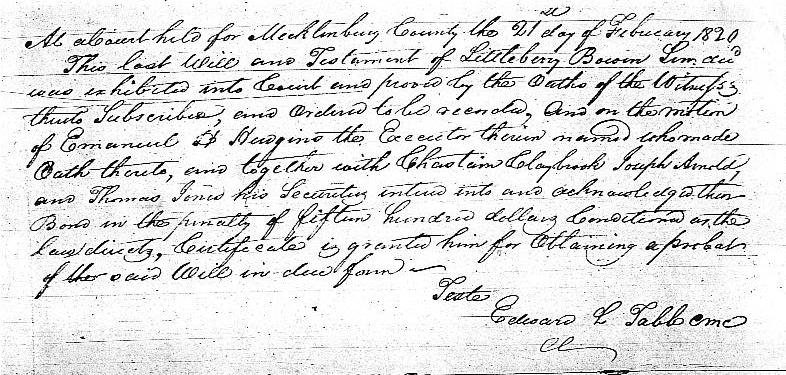 At a Court held for Mecklenburg County the 21st day of February 1820
This last Will and Testament of Littleberry Bowen Senr. decd
was exhibited into Court and proved by the Oaths of the Witnesses
thereto Subscribed, and Ordered to be recorded, And on the motion
of Emanuel H Hudgins the Executor therein named who made
Oath thereto, and together with Chastain Claybrook Joseph Arnold,
and Thomas Jones his Securities entered into and acknowledged their
Bond in the penalty of fifteen hundred dollars Conditioned as the
law directs, Certificate is granted him for Obtaining a probat
of the said Will in due form
Teste
Edward L Tabb cmc